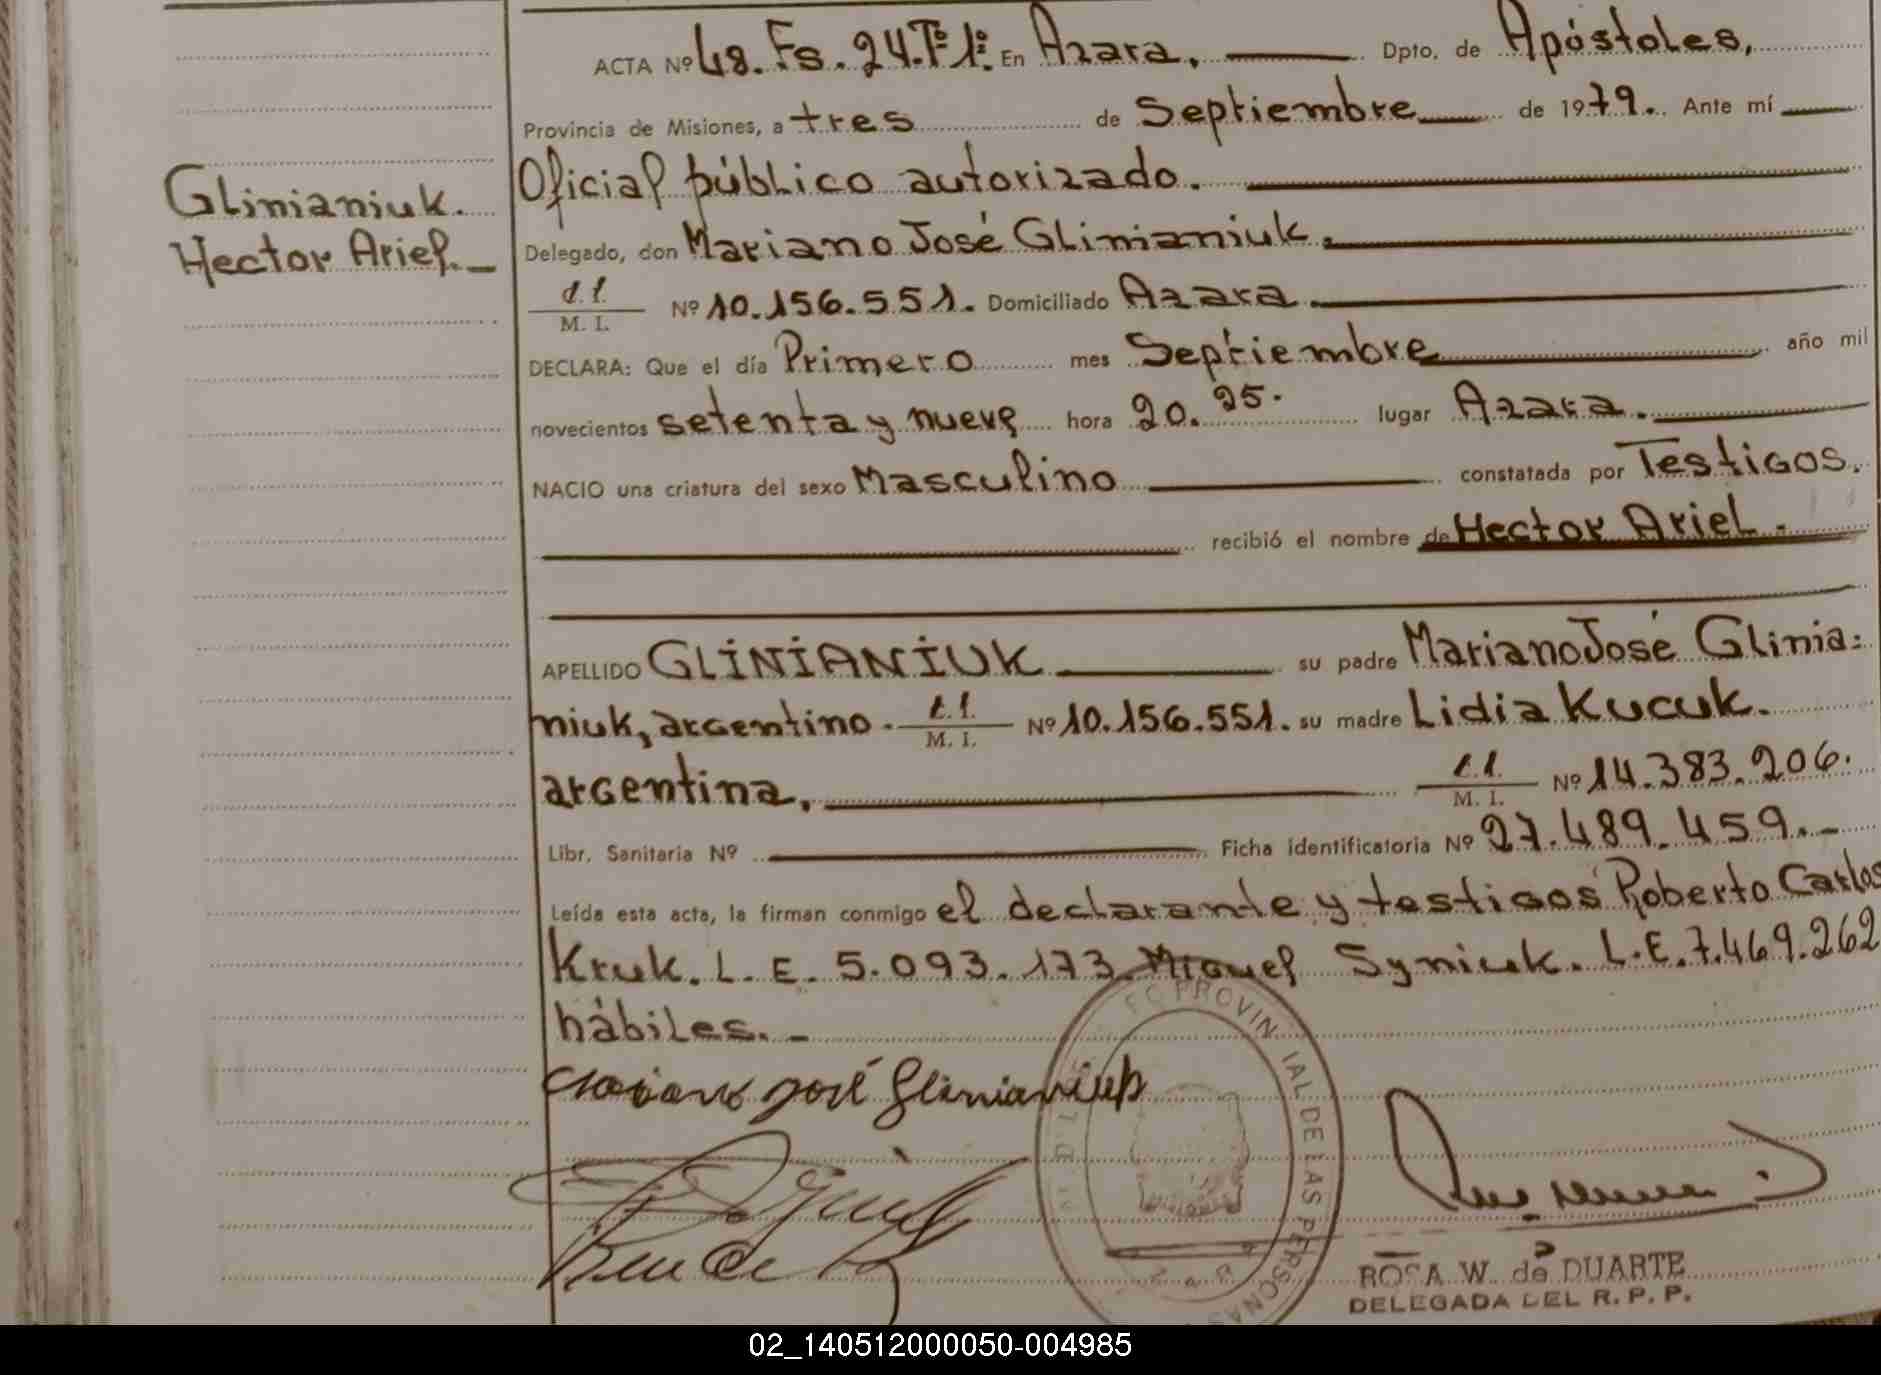 ACTA Nº 48. Fs. 24. Tº 1º. En Azara. Dpto. de Apóstoles,
Provincia de Misiones, a tres de Septiembre de 1979. Ante mí
Oficial público autorizado.
Glinianiuk.
Hector Ariel.
Delegado, don Mariano José Glinianiuk.
M. I. Nº 10.156.551. Domiciliado Azara
DECLARA: Que el día Primero mes Septiembre año mil
novecientos setenta y nueve hora 20.25. lugar Azara.
NACIO una criatura del sexo Masculino constatada por Testigos.
recibió el nombre de Hector Ariel.
APELLIDO GLINIANIUK su padre Mariano José Glinia=
niuk, argentino. M. I. Nº 10.156.551. su madre Lidia Kucuk.
argentina, M. I. Nº 14.383.206.
Libr. Sanitaria Nº Ficha identificatoria Nº 27.489.459.-
Leída esta acta, la firman conmigo el declarante y testigos Roberto Carlos
Kruk. L. E. 5.093.173. Miguel Syniuk. L.E. 7.469.262
hábiles.-
Mariano José Glinianiuk
PROVINCIAL DE LAS PERSONAS
ROSA W. de DUARTE
DELEGADA DEL R. P. P.
02_140512000050-004985